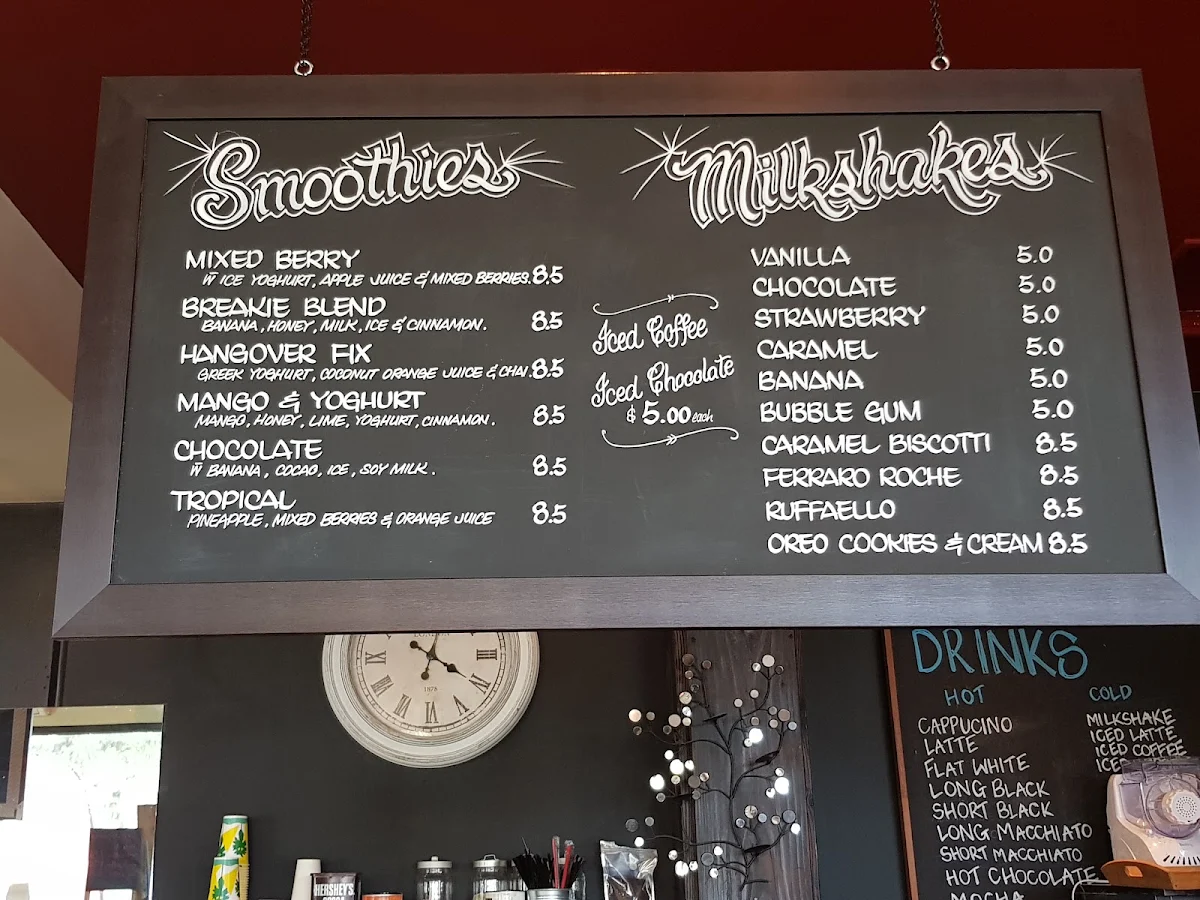 Smoothies
MIXED BERRY
W ICE YOGHURT, APPLE JUICE & MIXED BERRIES. 8.5
BREAKIE BLEND
BANANA, HONEY, MILK, ICE & CINNAMON. 8.5
HANGOVER FIX
GREEK YOGHURT, COCONUT ORANGE JUICE & CHAI. 8.5
MANGO & YOGHURT
MANGO, HONEY, LIME, YOGHURT, CINNAMON. 8.5
CHOCOLATE
W BANANA, COCAO, ICE, SOY MILK. 8.5
TROPICAL
PINEAPPLE, MIXED BERRIES & ORANGE JUICE 8.5
Iced Coffee
Iced Chocolate
$ 5.00 each
Milkshakes
VANILLA 5.0
CHOCOLATE 5.0
STRAWBERRY 5.0
CARAMEL 5.0
BANANA 5.0
BUBBLE GUM 5.0
CARAMEL BISCOTTI 8.5
FERRARO ROCHE 8.5
RUFFAELLO 8.5
OREO COOKIES & CREAM 8.5
III
IIII
V
VI
VII
VIII
IX
1878
HERSHEY'S
COCOA
DRINKS
HOT
CAPPUCINO
LATTE
FLAT WHITE
LONG BLACK
SHORT BLACK
LONG MACCHIATO
SHORT MACCHIATO
HOT CHOCOLATE
MOCHA
COLD
MILKSHAKE
ICED LATTE
ICED COFFEE